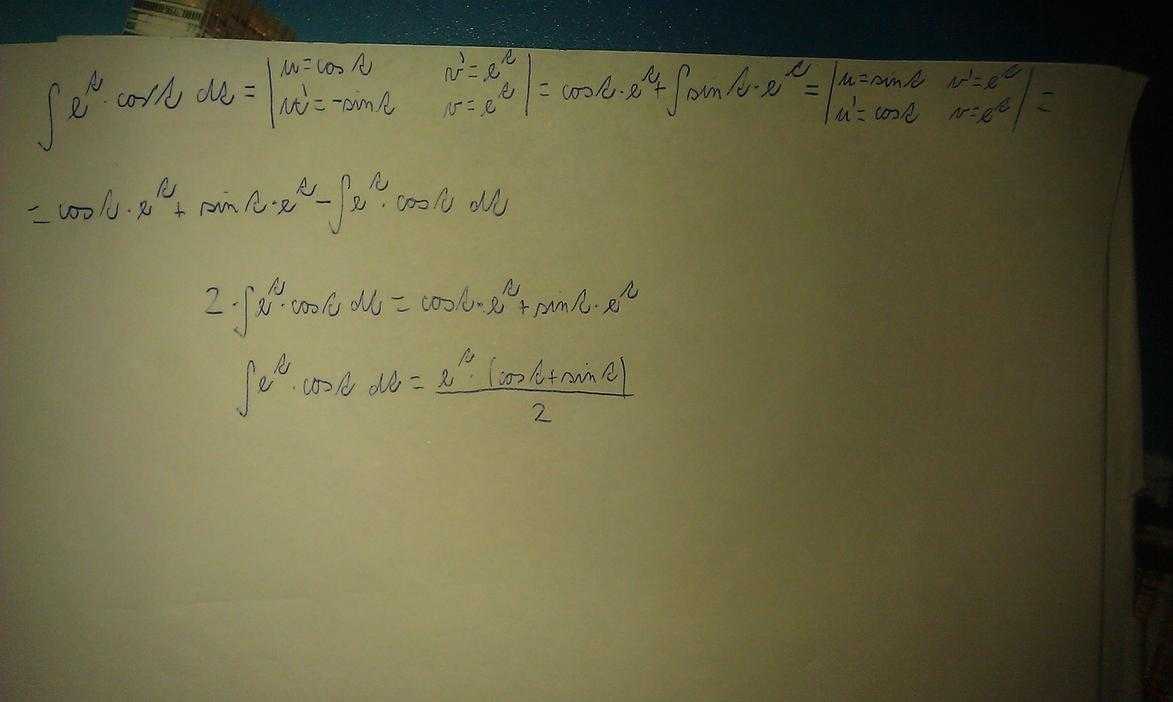 ∫ e^t · cos t dt = | u = cos t v' = e^t u' = -sin t v = e^t | = cos t · e^t + ∫ sin t · e^t = | u = sin t v' = e^t u' = cos t v = e^t | =
= cos t · e^t + sin t · e^t - ∫ e^t · cos t dt
2 · ∫ e^t · cos t dt = cos t · e^t + sin t · e^t
∫ e^t · cos t dt = e^t · (cos t + sin t) / 2